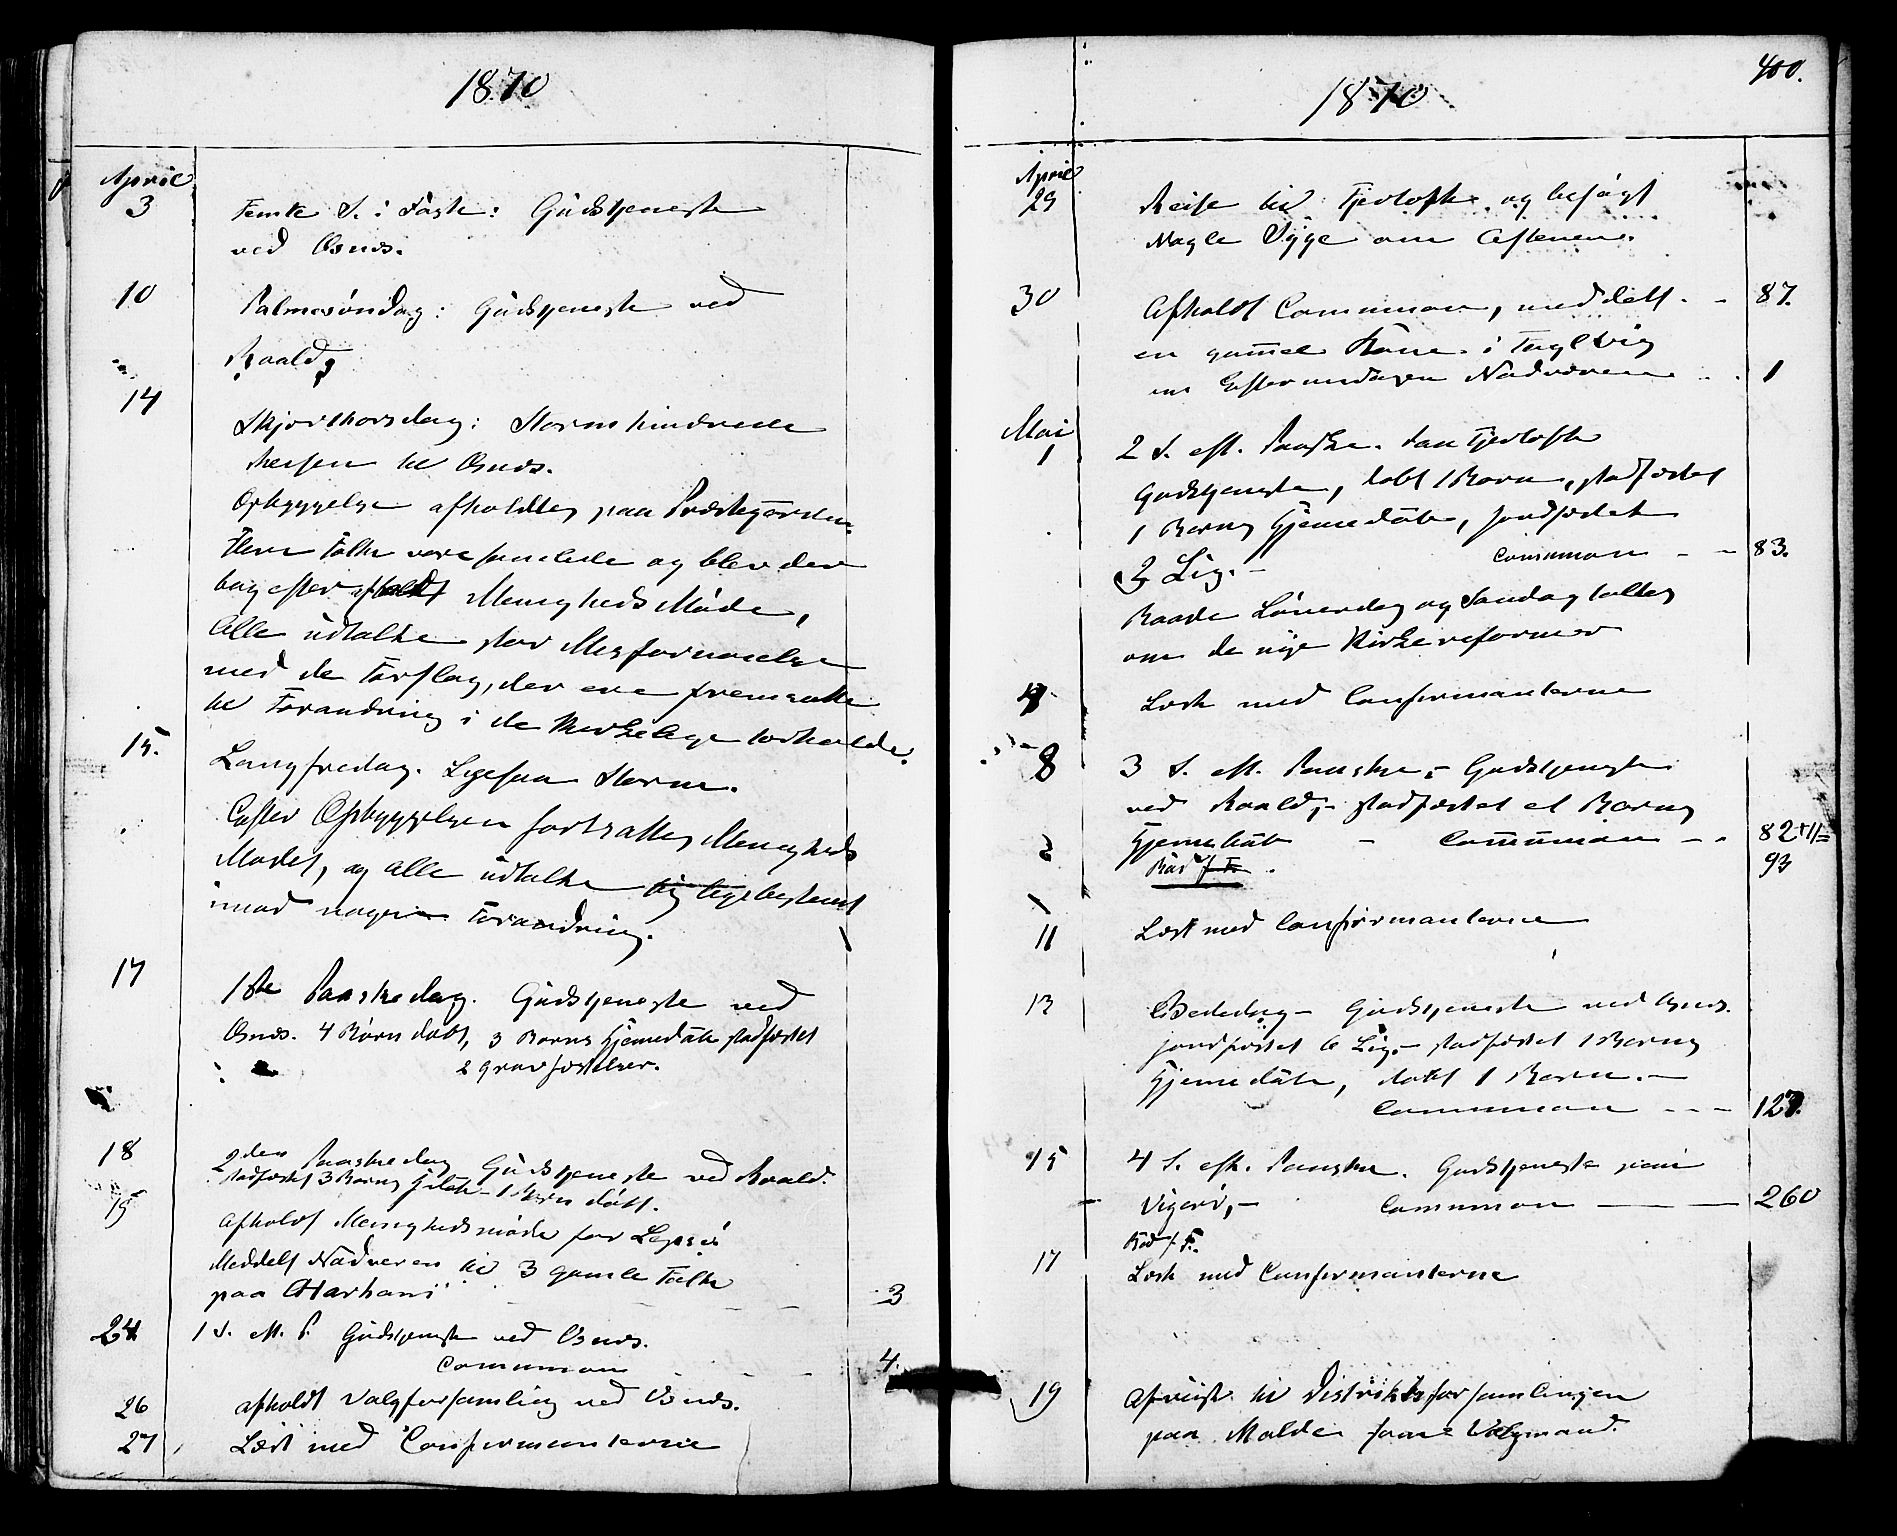 1870
April
3 Femte S. i Faste: Gudstjeneste
ved Osnæs.
10 Palmesøndag: Gudstjeneste ved
Roald
14
Skjærthorsdag: Storm hindrede
Reisen til Osnæs.
Opbyggelse afholdtes paa Præstegaarden.
Flere Folk vare samlede og blev der
bagefter afholdt Menigheds Møde,
Alle udtalte stor Misfornøielse
med de Forslag, der ere fremsatte
til Forandring i de kirkelige Forholde.
15. Langfredag. Ligesaa Storm.
Efter Opbyggelsen fortsattes Menigheds
Mødet, og alle udtalte sig bestemt
imod nogen Forandring.
17 1ste Paaskedag. Gudstjeneste ved
Osnæs. 4 Børn døbt, 3 Børns Hjemmedåb stadfæstet
2 Gravfæstelser.
18 2den Paaskedag Gudstjeneste ved Roald.
stadfæstet 3 Børns hj.dåb - 1 Børn døbt.
19 Afholdt Menighedsmøde for Lepsø
Meddelt Nadveren til 3 gamle Folk
paa Harham 3
24 1 S. eft. P. Gudstjeneste ved Osnæs.
Communion 4.
26 afholdt Valgforsamling ved Osnæs.
27 Læst med Confirmanterne
400.
1870
April
29 Reise til Fjertoft og besøgt
Nogle Syge om Aftenen.
30 Afholdt Communion, meddelt - 87.
en gammel Kone i Fuglevig
om Eftermiddagen Nadveren 1
Mai
1 2 S. eft. Paaske. Paa Fjertoft
Gudstjeneste, døbt 1 Barn, stadfæstet
1 Barns Hjemmedåb, jordfæstet
2 Lig. - Communion - - 83.
Baade Løverdag og Søndag taltes
om de nye Kirkereformer
4 Læst med Confirmanterne
8 3 S. eft. Paaske - Gudstjeneste
ved Roald, - stadfæstet et Barns
Hjemmedåb - Communion - - 82+11=
93
11 Læst med Confirmanterne
13 Bededag - Gudstjeneste ved Osnæs.
jordfæstet 6 Lig. - stadfæstet 1 Barns
Hjemmedåb, døbt 1 Barn. -
Communion - - - 127.
15 4 S. eft. Paaske. Gudstjeneste paa
Vigerø, - Communion - - 260
17 Læst med Confirmanterne
19 Afreist til Distriktsforsamlingen
paa Molde som Valgmand.